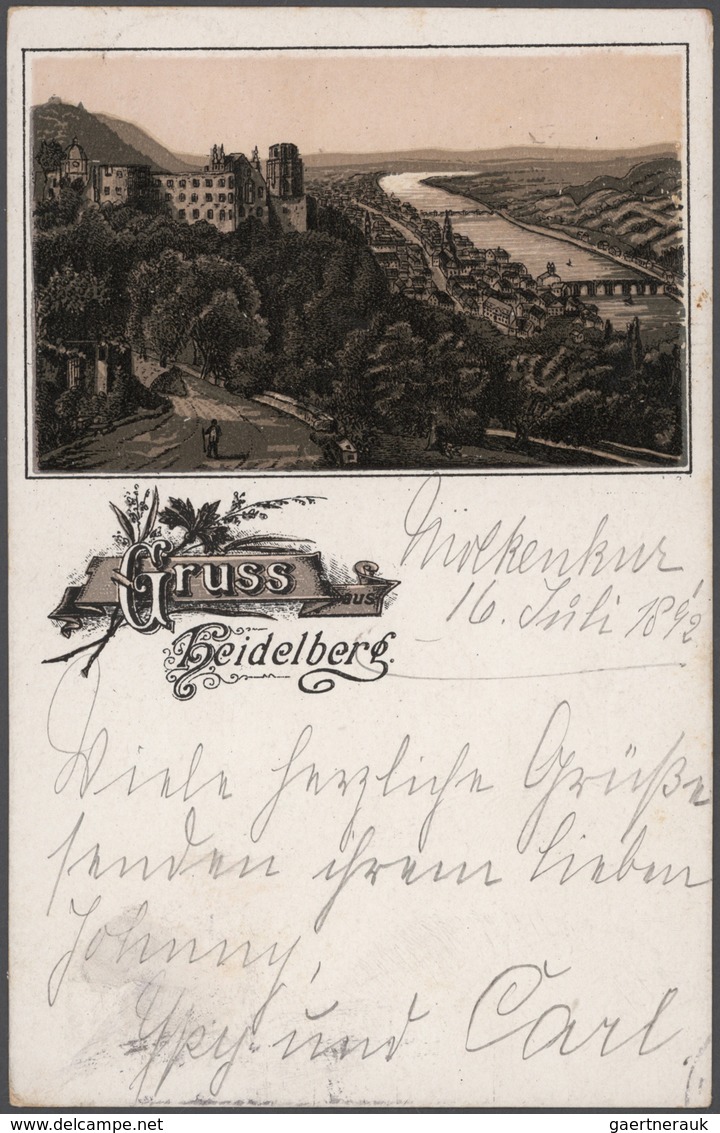 Gruss
aus
Heidelberg.
Molkenkur
16. Juli 1892
Viele herzliche Grüße
senden ihrem lieben
Johnny,
und Carl.
www.delcampe.net
gaertnerauk